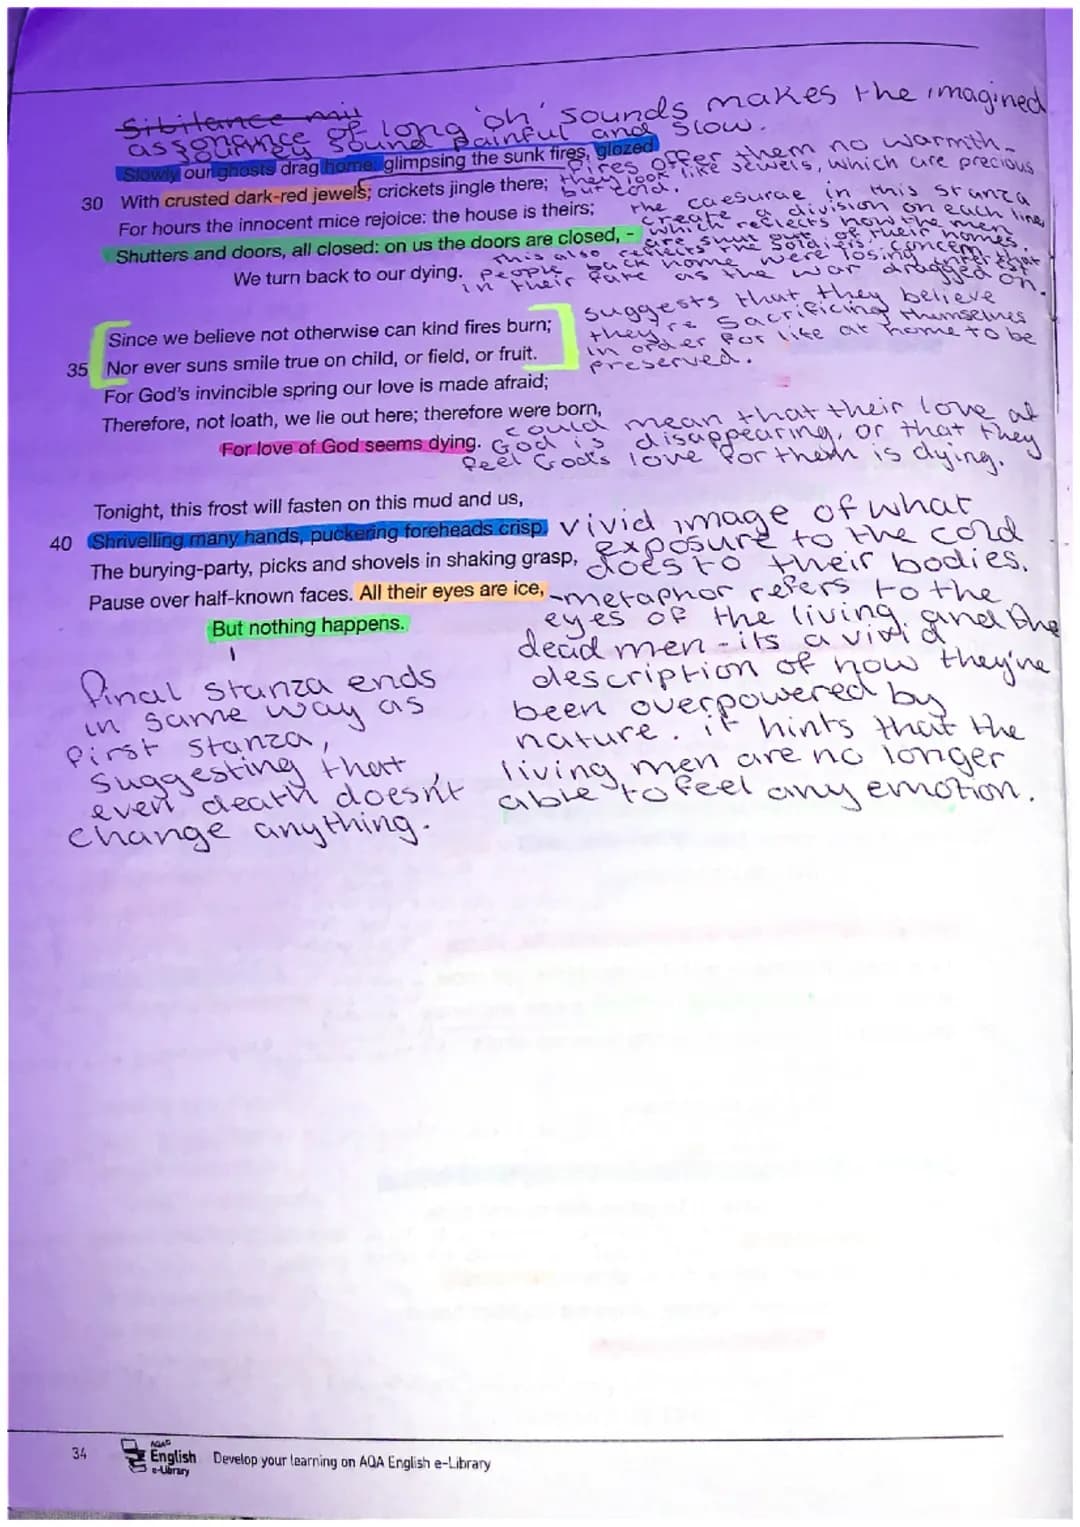 Sibilance mit
assonance of long 'oh' sounds makes the imagined
journey sound painful and slow.
Slowly our ghosts drag home: glimpsing the sunk fires, glozed
30 With crusted dark-red jewels; crickets jingle there;
For hours the innocent mice rejoice: the house is theirs;
Shutters and doors, all closed: on us the doors are closed, –
We turn back to our dying.
fires offer them no warmth-
they look like jewels, which are precious
but cold.
the caesurae in this stanza
create a division on each line,
which reflects how the men
are shut out of their homes.
This also reflects the soldiers' concern that
people back home were losing interest
in their fate as the war dragged on.
Since we believe not otherwise can kind fires burn;
35 Nor ever suns smile true on child, or field, or fruit.
For God's invincible spring our love is made afraid;
Therefore, not loath, we lie out here; therefore were born,
For love of God seems dying.
suggests that they believe
they're sacrificing themselves
in order for life at home to be
preserved.
could mean that their love of
God is disappearing, or that they
feel God's love for them is dying.
Tonight, this frost will fasten on this mud and us,
40 Shrivelling many hands, puckering foreheads crisp.
The burying-party, picks and shovels in shaking grasp,
Pause over half-known faces. All their eyes are ice,
But nothing happens.
vivid image of what
exposure to the cold
does to their bodies.
-metaphor refers to the
eyes of the living and the
dead men - its a vivid
description of how they're
been overpowered by
nature. it hints that the
living men are no longer
able to feel any emotion.
final stanza ends
in same way as
first stanza,
suggesting that
even death doesn't
change anything.
34
AQA
English
e-Library
Develop your learning on AQA English e-Library